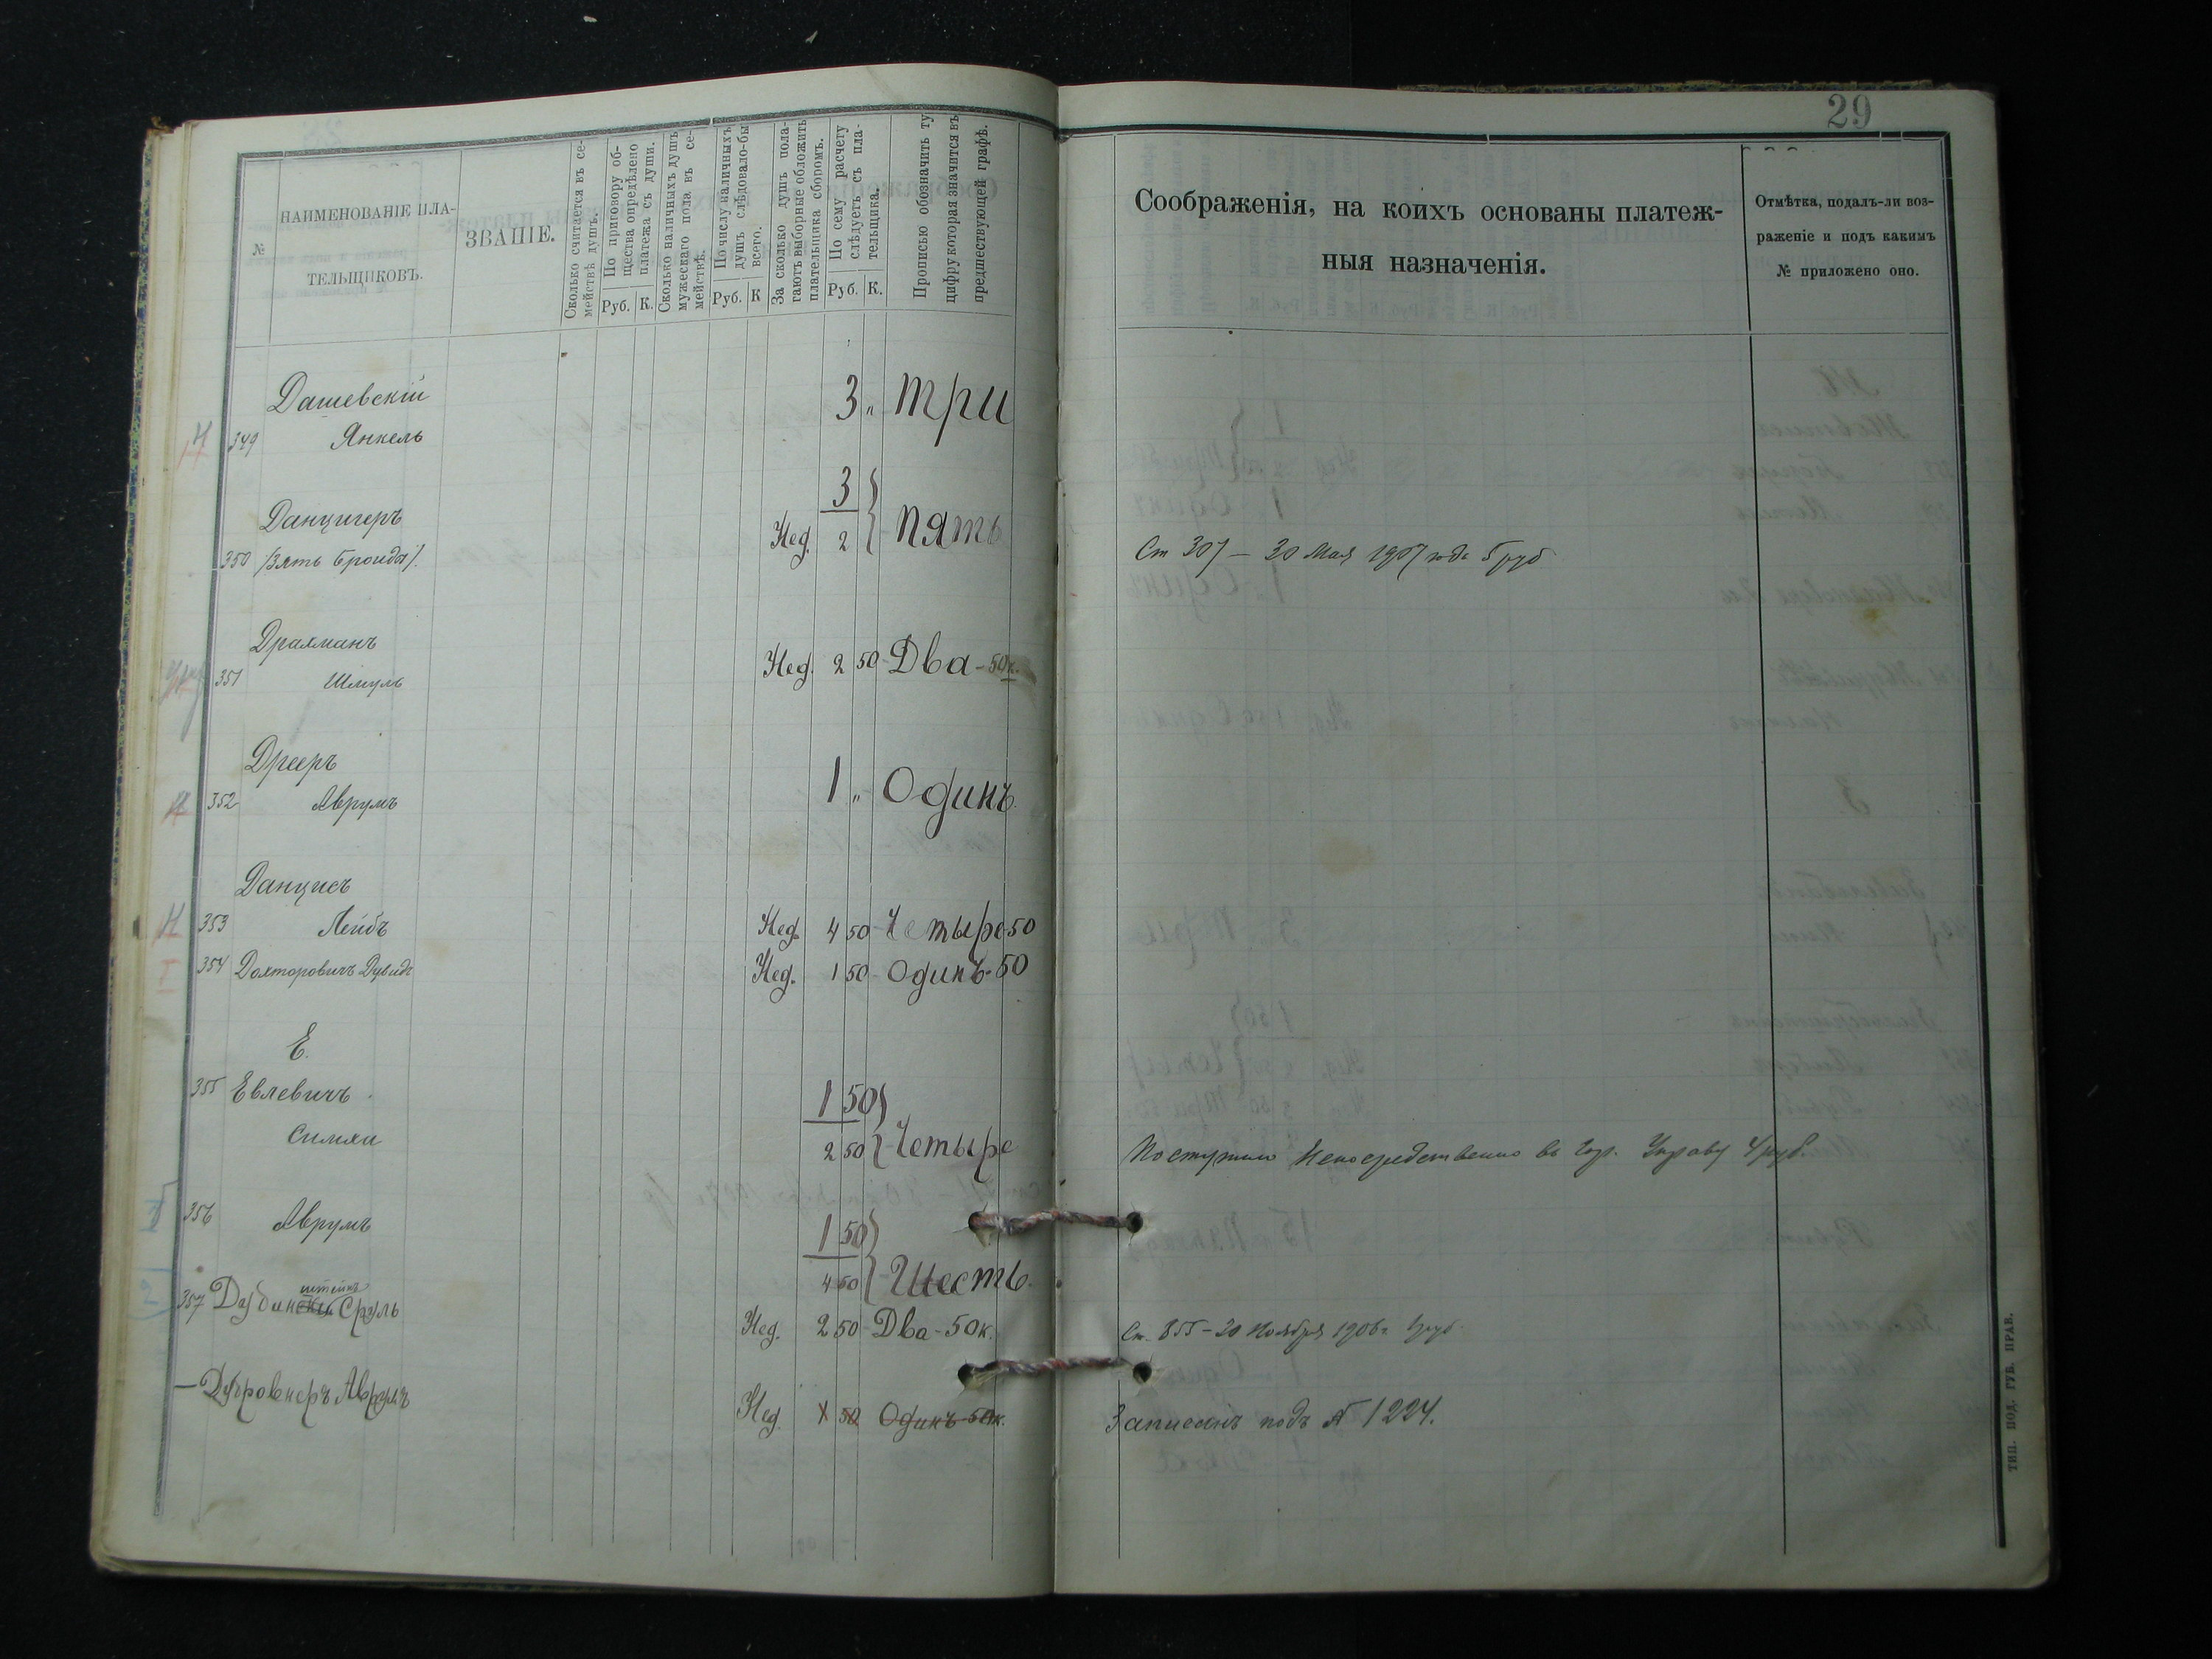 29
№
НАИМЕНОВАНІЕ ПЛА-
ТЕЛЬЩИКОВЪ.
ЗВАНІЕ.
Сколько считается въ се-
мействѣ душъ.
По приговору об-
щества опредѣлено
платежа съ души.
Руб. К.
Сколько наличныхъ душъ
мужескаго пола въ се-
мействѣ.
По числу наличныхъ
душъ слѣдовало-бы
всего.
Руб. К
За сколько душъ пола-
гаютъ выборные обложить
плательщика сборомъ.
По сему расчету
слѣдуетъ съ пла-
тельщика.
Руб. К.
Прописью обозначить ту
цифру которая значится въ
предшествующей графѣ.
Соображенія, на коихъ основаны платеж-
ныя назначенія.
Отмѣтка, подалъ-ли воз-
раженіе и подъ какимъ
№ приложено оно.
Дашевскій 3 " Три
349 Янкель
3
Данцигеръ Нед. 2 Пять
350 /Зять Броиды/. Ст 307 – 30 Мая 1907 года 5 руб
Драхманъ
351 Шмуль Нед. 2 50 Два - 50к.
Дрееръ
352 Аврумъ 1 " Одинъ
Данцисъ
353 Лейбъ Нед. 4 50 Четыре 50
354 Дохторовичъ Дувидъ Нед. 1 50 Одинъ-50
Е.
355 Евлевичъ 1 50
Симха 2 50 Четыре Поступило Непосредственно въ Гор. Управу 4 руб.
356 Аврумъ 1 50
4 50 Шесть.
штейнъ
357 Дубински Сруль Нед. 2 50 Два - 50к. Ст. 855 – 20 Ноября 1906 г. руб
— Дубровнеръ Аврумъ Нед. 1 50 Одинъ-50к. Записанъ подъ № 1224.
ТИП. ПОД. ГУБ. ПРАВ.